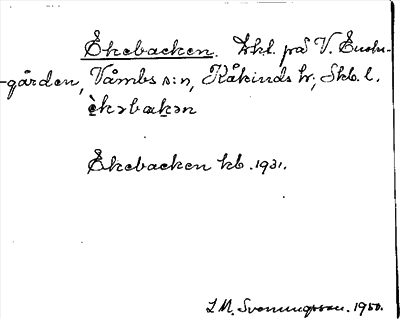 Ekebacken. Lht. på V. Enebo-
-gården, Våmbs s:n, Kåkinds hr; Skb. l.
è̱kəbakən
Ekebacken kb. 1931.
I. M. Svenungsson. 1950.